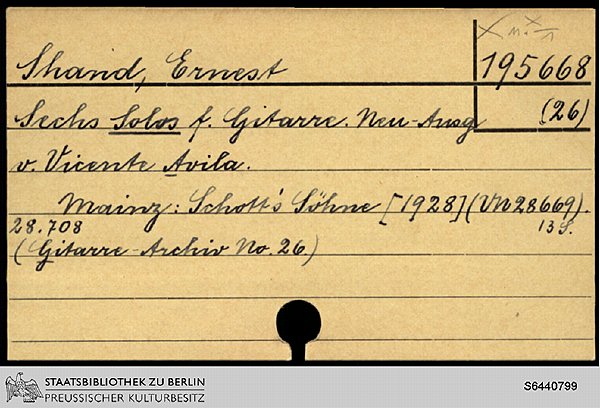 Shand, Ernest
195668
Sechs Solos f. Gitarre. Neu-Ausg
(26)
v. Vicente Avila.
Mainz: Schott's Söhne [1928] (VN 28669).
28.708
13 S.
(Gitarre-Archiv No. 26)
STAATSBIBLIOTHEK ZU BERLIN
PREUSSISCHER KULTURBESITZ
S6440799